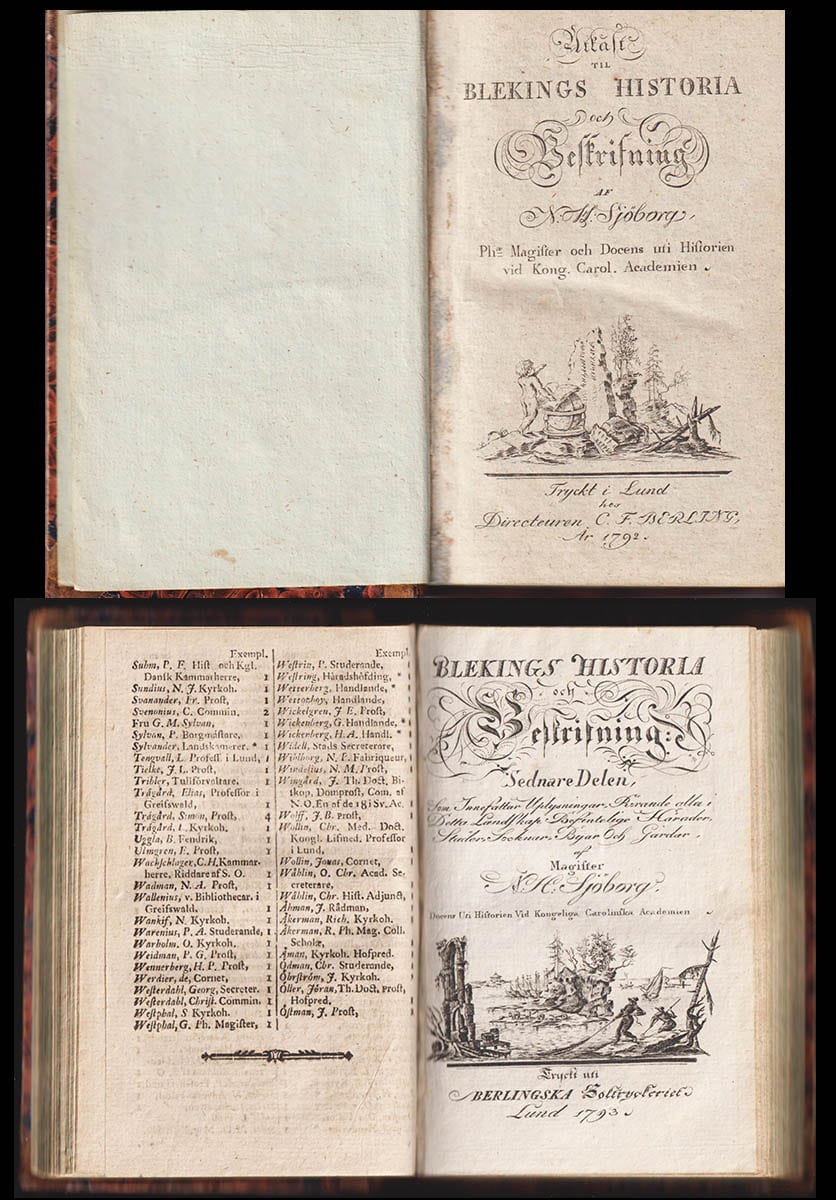 Utkast
TIL
BLEKINGS HISTORIA
och
Beskrifning
AF
N. H. Sjöborg,
Phæ Magister och Docens uti Historien
vid Kong. Carol. Academien.
Tryckt i Lund
hos
Directeuren C. F. BERLING,
År 1792.
Exempl.
Suhm, P. F. Hist och Kgl.
Dansk Kammarherre, 1
Sundius, N. J. Kyrkoh. 1
Svanander, Fr. Prost, 1
Svenonius, C. Commin, 2
Fru G. M. Sylvan, 1
Sylvan, P. Borgmästare, 1
Sylvander, Landskamerer. * 1
Tengvall, L. Profess. i Lund, 1
Tielke, J. L. Prost, 1
Tribler, Tullförvaltare. 1
Trägård, Elias, Professor i
Greifswald, 1
Trägård, Simon, Prost, 4
Trägård, L. Kyrkoh. 1
Uggla, B. Fendrik, 1
Ulmgren, E. Prost, 1
Wachschlager, C.H, Kammar-
herre, Riddare af S. O. 1
Wadman, N. A. Prost, 1
Wallenius, v. Bibliothecar. i
Greifswald. 1
Wankif, N. Kyrkoh. 1
Warenius, P. A. Studerande, 1
Warholm. O. Kyrkoh. 1
Weidman, P. G. Prost, 1
Wennerberg, H. P. Prost, 1
Werdier, de, Cornet, 1
Westerdahl, Georg, Secreter. 1
Westerdahl, Christ. Commin. 1
Westphal, S Kyrkoh. 1
Westphal, G. Ph. Magister, 1
Exempl.
Westrin, P. Studerande, 1
Westring, Häradshöfding, * 1
Wetterberg, Handlande, * 1
Handlande, 1
Wickelgren, J. E. Prost, 1
Wickenberg, G. Handlande, * 1
Wickenberg, H. A. Handl. * 1
Widell, Stads Secreterare, 1
Wihlborg, N. P. Fabriqueur, 1
Windelius, N. M. Prost, 1
Wingård, J. Th. Doct, Bi-
skop, Domprost, Com. af
N. O. En af de 18 i Sv. Ac. 1
Wolff, J. B. Prost, 1
Wollin, Chr. Med. Doct.
Kongl. Lifmed. Professor
i Lund, 1
Wollin, Jonas, Cornet, 1
Wåhlin, O. Chr. Acad. Se-
creterare, 1
Wåhlin, Chr. Hist. Adjunct, 1
Åhman, J. Rådman, 1
Åkerman, Rich. Kyrkoh. 1
Åkerman, R. Ph. Mag. Coll.
Scholæ, 1
Åman, Kyrkoh. Hofpred. 1
Ödman, Chr. Studerande, 1
Öhrström, J. Kyrkoh. 1
Öller, Jöran, Th. Doct, Prost,
Hofpred. 1
Östman, J. Prost, 1
BLEKINGS HISTORIA
och
Beskrifning:
Sednare Delen,
Som Innefattar Uplysningar, Rörande alla i
Detta Landskap Befintelige Härader,
Städer, Socknar, Byar Och Gårdar
af
Magister
N. H. Sjöborg,
Docens Uti Historien Vid Kongeliga Carolinska Academien
Tryckt uti
BERLINGSKA Boktryckeriet
Lund 1793.